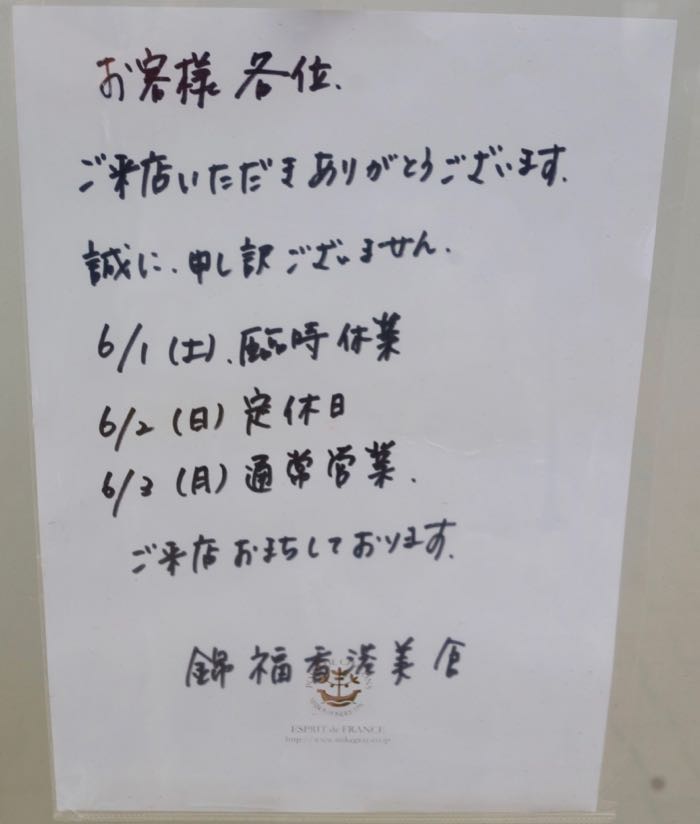 お客様 各位.
ご来店いただきありがとうございます.
誠に、申し訳ございません.
6/1(土)、臨時休業
6/2(日)定休日
6/3(月)通常営業.
ご来店おまちしております.
錦福香港美食
ESPRIT de FRANCE